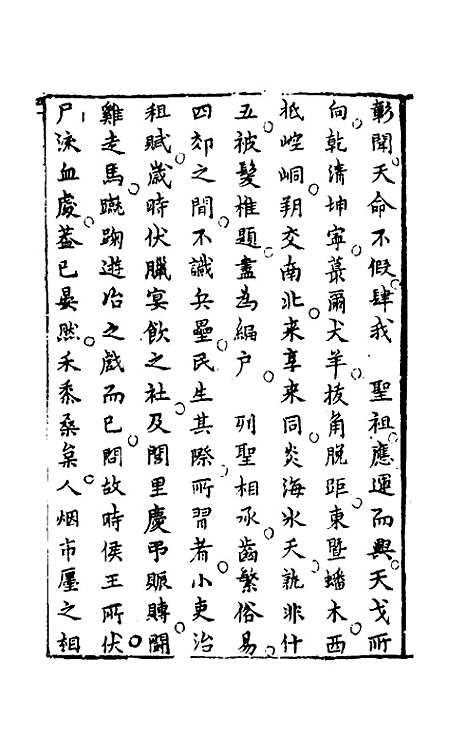 彰聞天命不假肆我　聖祖應運而興天戈所
向乾清坤寧蕞爾犬羊拔角脫距東暨蟠木西
抵崆峒朔交南北来享来同炎海氷天孰非什
五被髮椎題盡為編户　列聖相承齒繁俗易
四郊之間不識兵壘民生其際所習者小吏治
租賦歲時伏臘宴飲之社及閭里慶弔賑賻鬪
雞走馬蹴踘遊冶之戲而已問故時侯王所伏
尸流血處葢已晏然禾黍桑枲人烟市廛之相